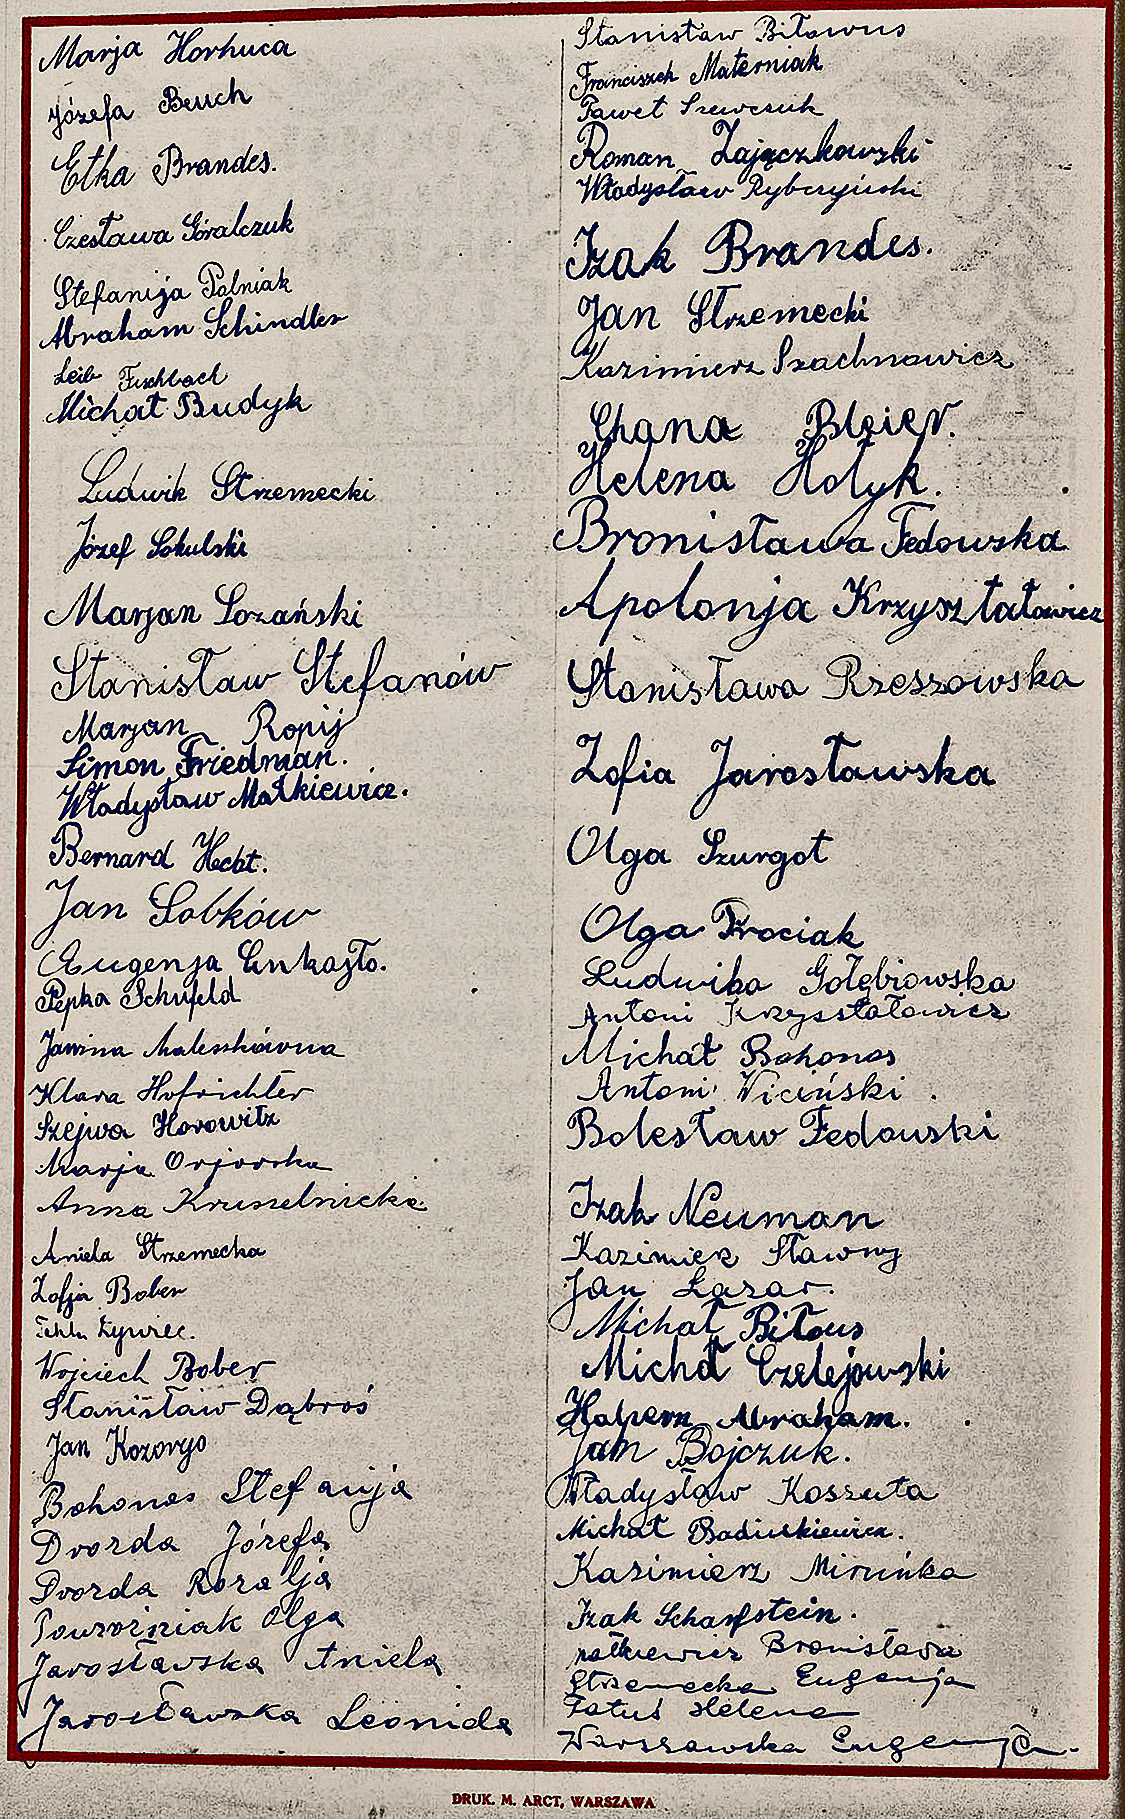 Marja Horhuca
Józefa Beuch
Etka Brandes.
Czesława Góralczuk
Stefanija Palniak
Abraham Schindler
Leib Fischbach
Michał Budyk
Ludwik Strzemecki
Józef Sokulski
Marjan Łozański
Stanisław Stefanów
Marjan Ropij
Simon Friedman.
Władysław Małkiewicz.
Bernard Hecht.
Jan Sobków
Eugenja
Pepka Schnfeld
Janina Maleszkówna
Klara Hofrichter
Szejwa Horowitz
Marja
Anna Kruszelnicka
Aniela Strzemecka
Zofja Bober
Żywiec.
Wojciech Bober
Stanisław Dąbroś
Jan Kozoryjo
Bohonos Stefanija
Dworda Józefa
Dworda Rozalja
Powroźniak Olga
Jarosławska Aniela
Jarosławska Leonida
Stanisław Biławus
Franciszek Materniak
Paweł Szewczuk
Roman Zajączkowski
Władysław Rybczyński
Izak Brandes.
Jan Strzemecki
Kazimierz Szachnawicz
Chana Bleier.
Helena Hołyk.
Bronisława Fedowska
Apolonja Krzyształowicz
Stanisława Rzeszowska
Zofia Jarosławska
Olga Szurgot
Olga Trociak
Ludwika Gołębiowska
Antoni Krzyształowicz
Michał Bohonos
Antoni Wiciński
Bolesław Fedowski
Izak Neuman
Kazimierz Sławny
Jan Łazar.
Michał Biłous
Michał Czelejowski
Halpern Abraham.
Jan Bojczuk.
Władysław Koszuta
Michał Badiuskiewicz.
Kazimierz Miruńka
Izak Scharfstein.
Małkiewicz Bronisława
Strzemecka Eugenja
Fatuś Helena
Warszawska Eugenja
DRUK. M. ARCT, WARSZAWA